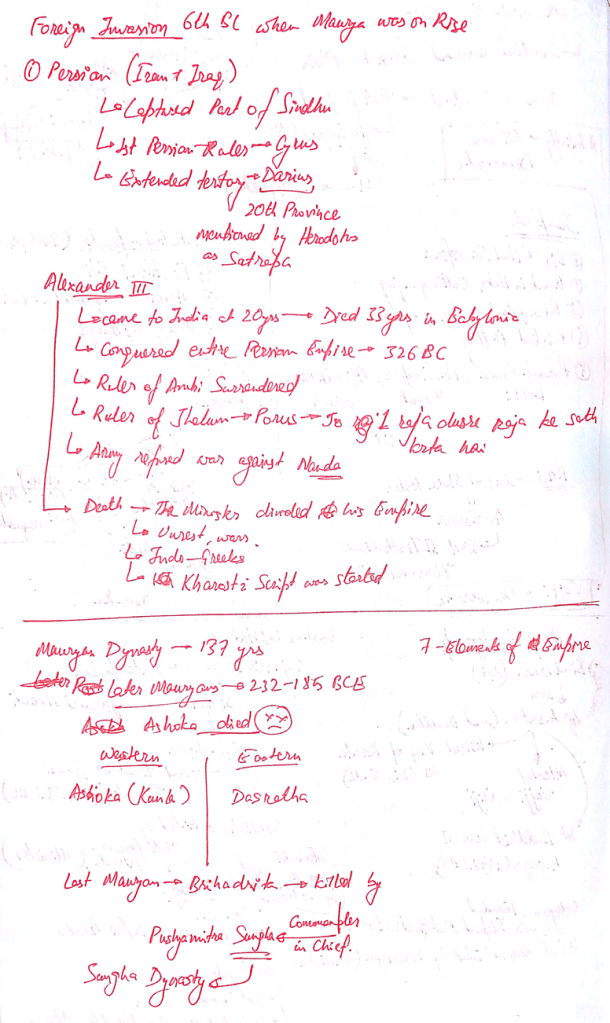 Foreign Invasion 6th BC when Maurya was on Rise
① Persian (Iran + Iraq)
↳ Captured Part of Sindhu
↳ 1st Persian Ruler → Cyrus
↳ Extended tertory → Darius,
20th Province
mentioned by Herodotus
as Satrapa
Alexander III
↳ came to India at 20yrs → Died 33 yrs in Babylonia
↳ Conquered entire Persian Empire → 326 BC
↳ Ruler of Ambi Surrendered
↳ Ruler of Jhelum → Porus → Jo 1 raja dusre raja ke sath
krta hai
↳ Army refused war against Nanda
↳ Death → The Ministers divided his Empire
↳ Unrest, wars.
↳ Indo-Greeks
↳ Kharosti Script was started
Mauryan Dynasty → 137 yrs 7-Elements of Empire
Later Mauryans → 232-185 BCE
Ashoka died
Western Eastern
Ashoka (Kunla) Dasratha
Last Mauryan → Brihadrita → killed by
Commander
Pushyamitra Sungha in Chief.
Sungha Dynasty